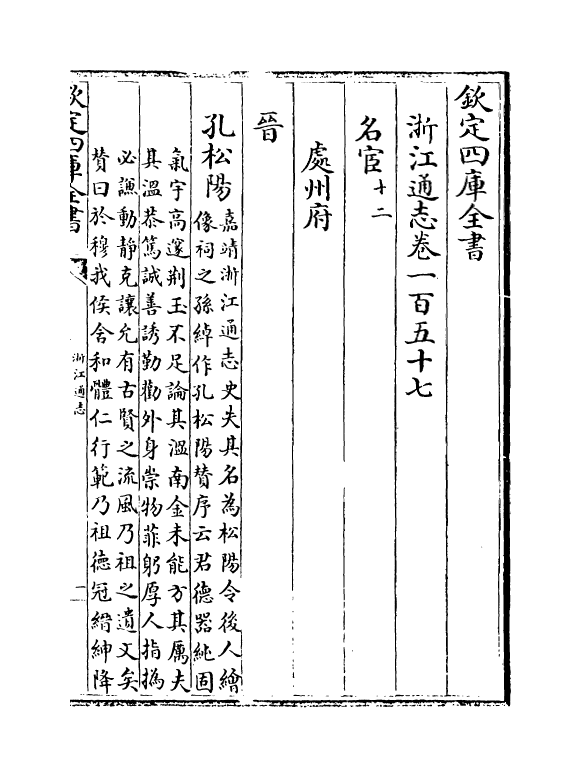 欽定四庫全書
浙江通志卷一百五十七
名宦十二
處州府
晉
孔松陽嘉靖浙江通志史失其名為松陽令後人繪
像祠之孫綽作孔松陽贊序云君德器純固
氣宇高邃荆玉不足論其溫南金未能方其厲夫
其溫恭篤誠善誘勤勸外身崇物菲躬厚人指撝
必謙動靜克讓允有古賢之流風乃祖之遺文矣
贊曰於穆我侯含和體仁行範乃祖德冠縉紳降
欽定四庫全書
浙江通志
一